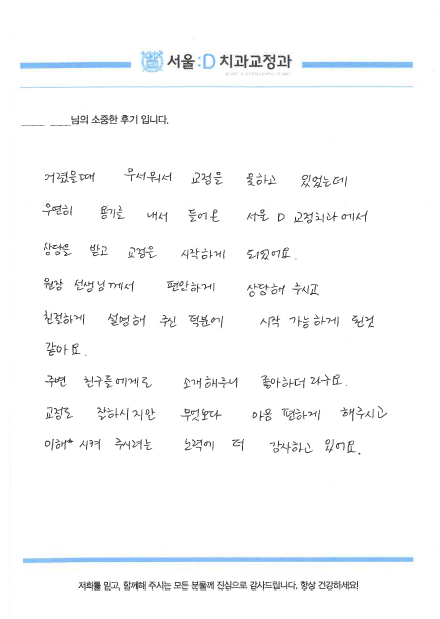 서울:D 치과교정과
님의 소중한 후기 입니다.
어렸을때 무서워서 교정을 못하고 있었는데
우연히 용기를 내서 들어온 서울 D 교정치과에서
상담을 받고 교정을 시작하게 되었어요.
원장 선생님께서 편안하게 상담해 주시고
친절하게 설명해 주신 덕분에 시작 가능하게 된것
같아요.
주변 친구들에게도 소개해주니 좋아하더라구요.
교정도 잘하시지만 무엇보다 마음 편하게 해주시고
이해 시켜 주시려는 노력에 더 감사하고 있어요.
저희를 믿고, 함께해 주시는 모든 분들께 진심으로 감사드립니다. 항상 건강하세요!